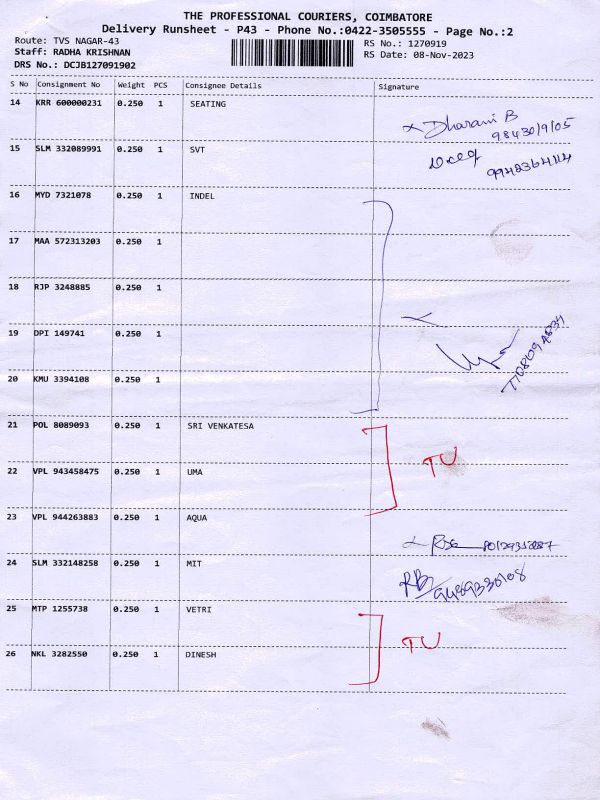 THE PROFESSIONAL COURIERS, COIMBATORE
Delivery Runsheet - P43 - Phone No.:0422-3505555 - Page No.:2
Route: TVS NAGAR-43
RS No.: 1270919
Staff: RADHA KRISHNAN
RS Date: 08-Nov-2023
DRS No.: DCJB127091902
S No Consignment No Weight PCS Consignee Details Signature
14 KRR 600000231 0.250 1 SEATING
x Dharani B
15 SLM 332089991 0.250 1 SVT
16 MYD 7321078 0.250 1 INDEL
17 MAA 572313203 0.250 1
18 RJP 3248885 0.250 1
19 DPI 149741 0.250 1
20 KMU 3394108 0.250 1
21 POL 8089093 0.250 1 SRI VENKATESA
TU
22 VPL 943458475 0.250 1 UMA
23 VPL 944263883 0.250 1 AQUA
24 SLM 332148258 0.250 1 MIT
RB
9489330108
25 MTP 1255738 0.250 1 VETRI
TU
26 NKL 3282550 0.250 1 DINESH